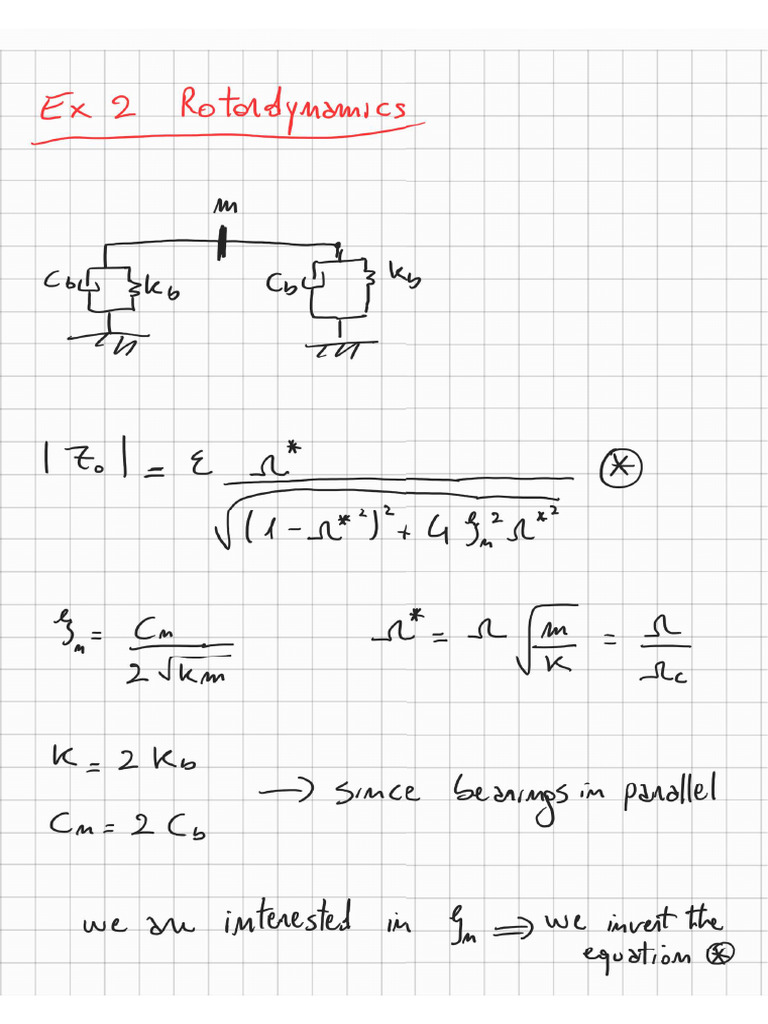 Ex 2 Rotordynamics
m
Cb kb Cb kb
|Z₀| = ε Ω* / √((1 - Ω*²)² + 4 ξₙ² Ω*²) ⊛
ξₙ = Cₙ / (2√(km)) Ω* = Ω √(m/k) = Ω / Ωc
K = 2 Kb
→ since bearings in parallel
Cₙ = 2 Cb
we are interested in ξₙ ⇒ we invert the
equation ⊛